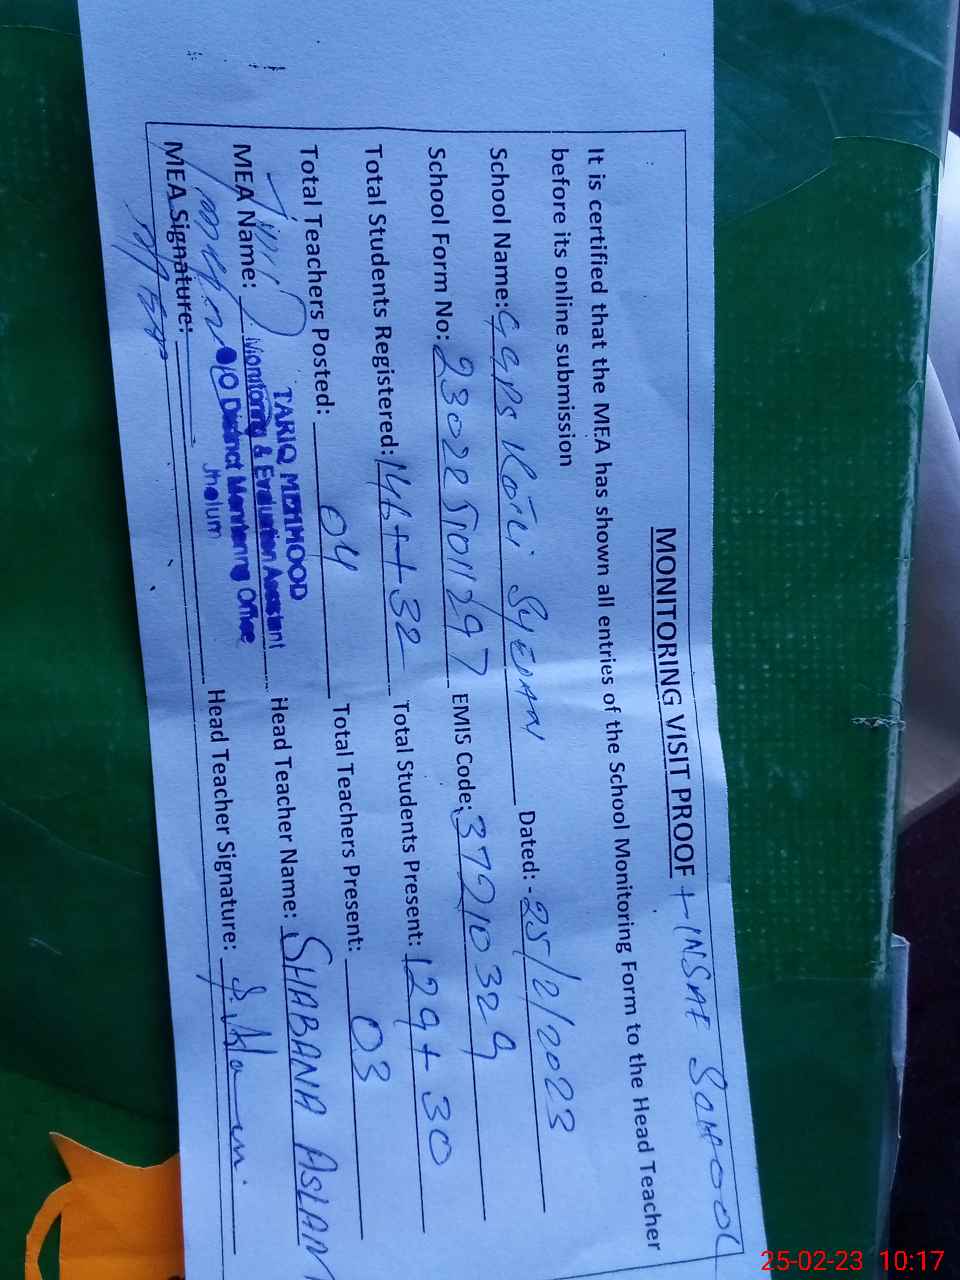 MONITORING VISIT PROOF + INSAF SCHOOL
It is certified that the MEA has shown all entries of the School Monitoring Form to the Head Teacher
before its online submission
School Name: GGPS KOTLI SYEDAN Dated: - 25/2/2023
School Form No: 23022501297 EMIS Code: 37210329
Total Students Registered: 146+32 Total Students Present: 129+30
Total Teachers Posted: 04 Total Teachers Present: 03
TARIQ MEHMOOD
MEA Name: Monitoring & Evaluation Assistant Head Teacher Name: SHABANA ASLAM
O/O District Monitoring Office
Jhelum
MEA Signature: Head Teacher Signature: S. Aslam
25-02-23 10:17